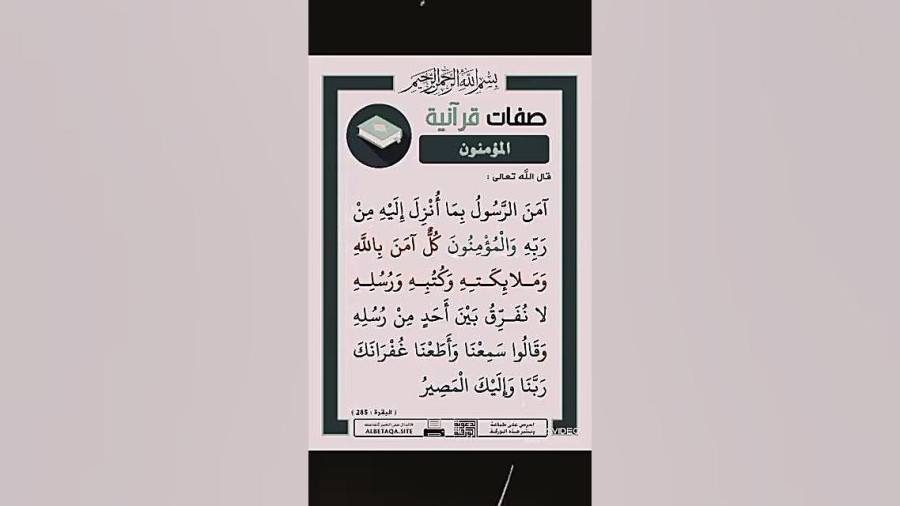 بسم الله الرحمن الرحيم
صفات قرآنية
المؤمنون
قال الله تعالى :
آمَنَ الرَّسُولُ بِمَا أُنْزِلَ إِلَيْهِ مِنْ
رَبِّهِ وَالْمُؤْمِنُونَ كُلٌّ آمَنَ بِاللَّهِ
وَمَلَائِكَتِهِ وَكُتُبِهِ وَرُسُلِهِ
لا نُفَرِّقُ بَيْنَ أَحَدٍ مِنْ رُسُلِهِ
وَقَالُوا سَمِعْنَا وَأَطَعْنَا غُفْرَانَكَ
رَبَّنَا وَإِلَيْكَ الْمَصِيرُ
( البقرة : 285 )
احرص على طباعة
ونشر هذه الورقة
ALBETAQA.SITE
VIDEO